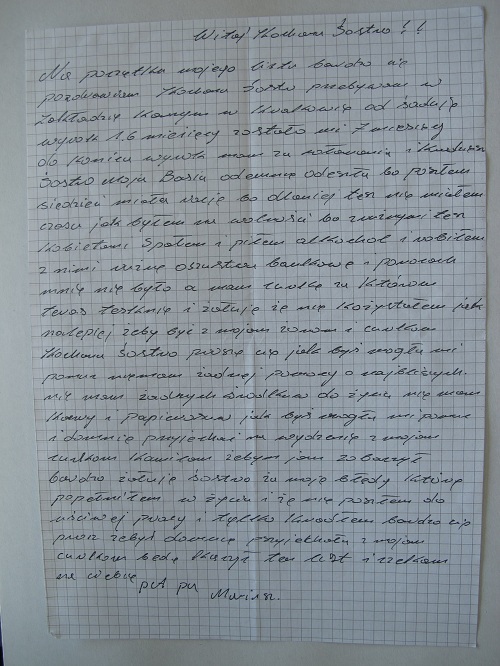 Witaj Kochana Siostro!!
Na początku mojego listu bardzo cię
pozdrawiam Kochana Siostro przebywam w
Zakładzie Karnym w Krakowie od siaduję
wyrok 1.6 miesięcy zostało mi 7 miesięcy
do końca wyroku mam za włamania i kradzieże
Siostro moja Basia odemnie odeszła bo poszłem
siedzieć miała rację bo dla niej też nie miałem
czasu jak byłem na wolności bo z różnymi też
kobietami spałem i piłem alkohol i robiłem
z nimi różne oszustwa bankowe i ponocach
mnie nie było a mam curkę za którom
teraz tesknię i żałuję że nie kożystałem jak
najlepiej żeby być z mojom żonom i curkom
Kochana Siostro proszę cię jak byś mogła mi
pomuc niemam żadnej pomocy o najbliższych
nie mam żadnych środków do życia nie mam
kawy i papierosa jak byś mogła mi pomuc
i domnie przyjechać na widzenie z mojom
curkom Kamilom żebym jom zobaczył
bardzo żałuję Siostro za moje błędy które
popełniłem w życiu i że nie poszłem do
uściwej pracy i tylko kradłem bardzo cię
proszę żebyś domnie przyjechała z mojom
curkom będę kończył ten list i czekom
na ciebie pa pa
Mariusz.